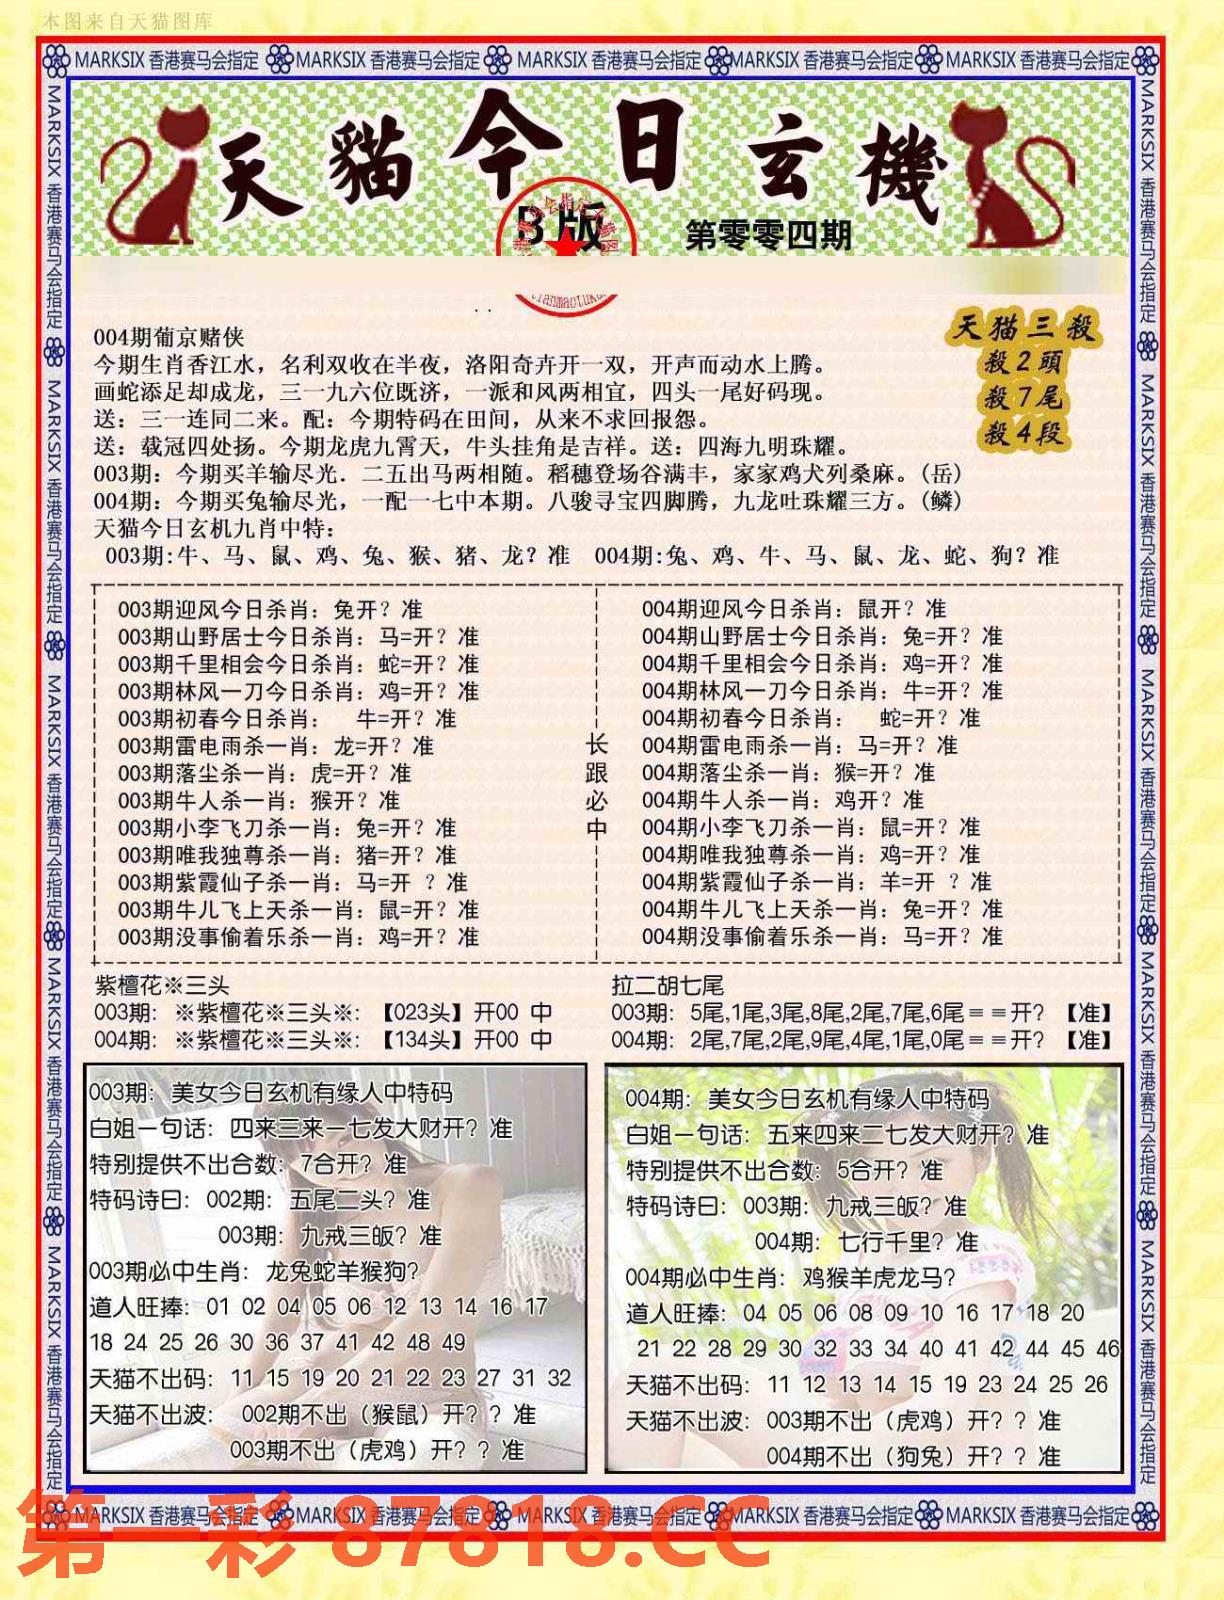 本图来自天猫图库
MARKSIX 香港赛马会指定 MARKSIX 香港赛马会指定 MARKSIX 香港赛马会指定 MARKSIX 香港赛马会指定 MARKSIX 香港赛马会指定
天貓今日玄機
B版
第零零四期
天猫三殺
殺2頭
殺7尾
殺4段
004期葡京赌侠
今期生肖香江水，名利双收在半夜，洛阳奇卉开一双，开声而动水上腾。
画蛇添足却成龙，三一九六位既济，一派和风两相宜，四头一尾好码现。
送：三一连同二来。配：今期特码在田间，从来不求回报怨。
送：载冠四处扬。今期龙虎九霄天，牛头挂角是吉祥。送：四海九明珠耀。
003期：今期买羊输尽光．二五出马两相随。稻穗登场谷满丰，家家鸡犬列桑麻。(岳)
004期：今期买兔输尽光，一配一七中本期。八骏寻宝四脚腾，九龙吐珠耀三方。(鳞)
天猫今日玄机九肖中特：
003期:牛、马、鼠、鸡、兔、猴、猪、龙？准 004期:兔、鸡、牛、马、鼠、龙、蛇、狗？准
003期迎风今日杀肖：兔开？准
003期山野居士今日杀肖：马=开？准
003期千里相会今日杀肖：蛇=开？准
003期林风一刀今日杀肖：鸡=开？准
003期初春今日杀肖： 牛=开？准
003期雷电雨杀一肖：龙=开？准
003期落尘杀一肖：虎=开？准
003期牛人杀一肖：猴开？准
003期小李飞刀杀一肖：兔=开？准
003期唯我独尊杀一肖：猪=开？准
003期紫霞仙子杀一肖：马=开 ？准
003期牛儿飞上天杀一肖：鼠=开？准
003期没事偷着乐杀一肖：鸡=开？准
长跟必中
004期迎风今日杀肖：鼠开？准
004期山野居士今日杀肖：兔=开？准
004期千里相会今日杀肖：鸡=开？准
004期林风一刀今日杀肖：牛=开？准
004期初春今日杀肖： 蛇=开？准
004期雷电雨杀一肖：马=开？准
004期落尘杀一肖：猴=开？准
004期牛人杀一肖：鸡开？准
004期小李飞刀杀一肖：鼠=开？准
004期唯我独尊杀一肖：鸡=开？准
004期紫霞仙子杀一肖：羊=开 ？准
004期牛儿飞上天杀一肖：兔=开？准
004期没事偷着乐杀一肖：马=开？准
紫檀花※三头
003期：※紫檀花※三头※:【023头】开00 中
004期：※紫檀花※三头※:【134头】开00 中
拉二胡七尾
003期：5尾,1尾,3尾,8尾,2尾,7尾,6尾＝＝开？【准】
004期：2尾,7尾,2尾,9尾,4尾,1尾,0尾＝＝开？【准】
003期：美女今日玄机有缘人中特码
白姐一句话：四来三来一七发大财开？准
特别提供不出合数：7合开？准
特码诗曰：002期：五尾二头？准
003期：九戒三皈？准
003期必中生肖：龙兔蛇羊猴狗？
道人旺捧：01 02 04 05 06 12 13 14 16 17
18 24 25 26 30 36 37 41 42 48 49
天猫不出码：11 15 19 20 21 22 23 27 31 32
天猫不出波： 002期不出（猴鼠）开？？准
003期不出（虎鸡）开？？准
004期：美女今日玄机有缘人中特码
白姐一句话：五来四来二七发大财开？准
特别提供不出合数：5合开？准
特码诗曰：003期：九戒三皈？准
004期：七行千里？准
004期必中生肖：鸡猴羊虎龙马？
道人旺捧：04 05 06 08 09 10 16 17 18 20
21 22 28 29 30 32 33 34 40 41 42 44 45 46
天猫不出码：11 12 13 14 15 19 23 24 25 26
天猫不出波：003期不出（虎鸡）开？？准
004期不出（狗兔）开？？准
MARKSIX 香港赛马会指定 MARKSIX 香港赛马会指定 MARKSIX 香港赛马会指定 MARKSIX 香港赛马会指定 MARKSIX 香港赛马会指定
MARKSIX 香港赛马会指定 MARKSIX 香港赛马会指定 MARKSIX 香港赛马会指定 MARKSIX 香港赛马会指定 MARKSIX 香港赛马会指定
MARKSIX 香港赛马会指定 MARKSIX 香港赛马会指定 MARKSIX 香港赛马会指定 MARKSIX 香港赛马会指定 MARKSIX 香港赛马会指定
第一彩 87818.CC